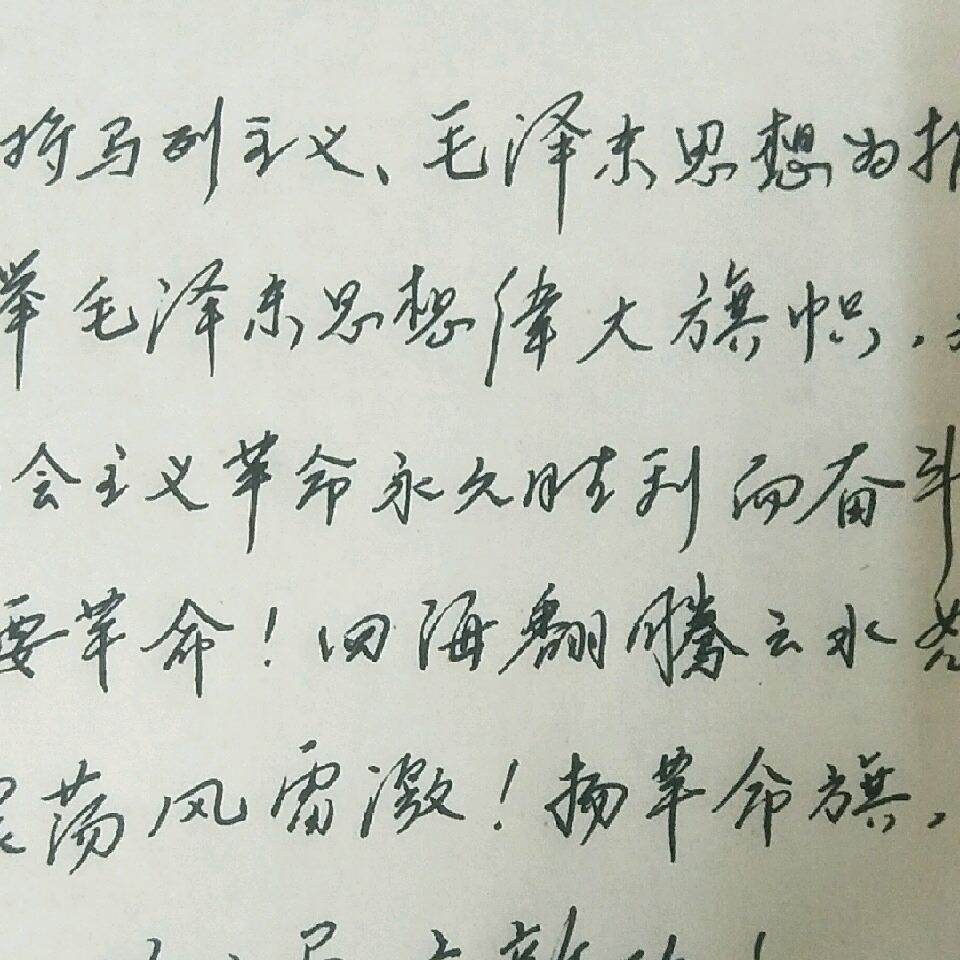 将马列主义、毛泽东思想为
举毛泽东思想偉大旗帜.
会主义革命永久胜利而奋斗
要革命！四海翻腾云水
震荡风雷激！扬革命旗，